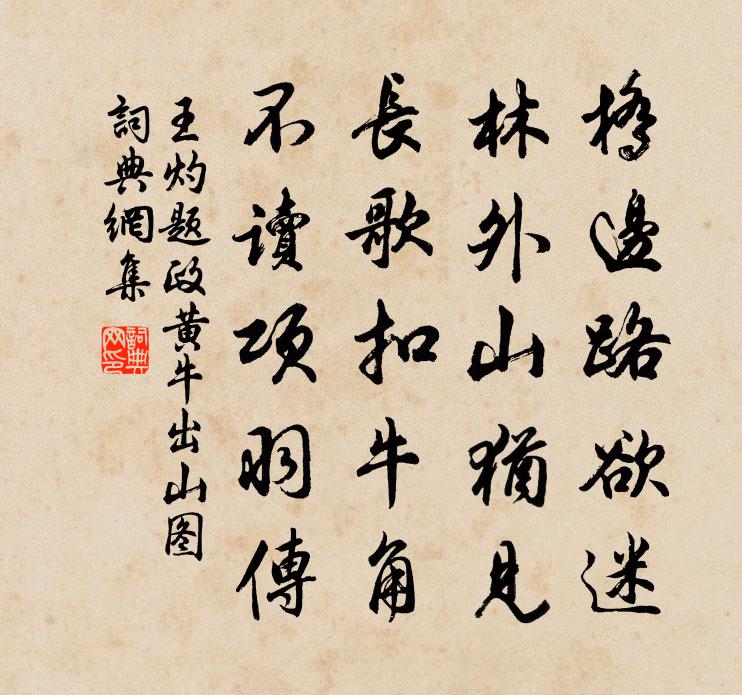 橋邊路欲迷
林外山猶見
長歌扣牛角
不讀項羽傳
王灼题政黄牛出山图
詞典網集
詞典網印